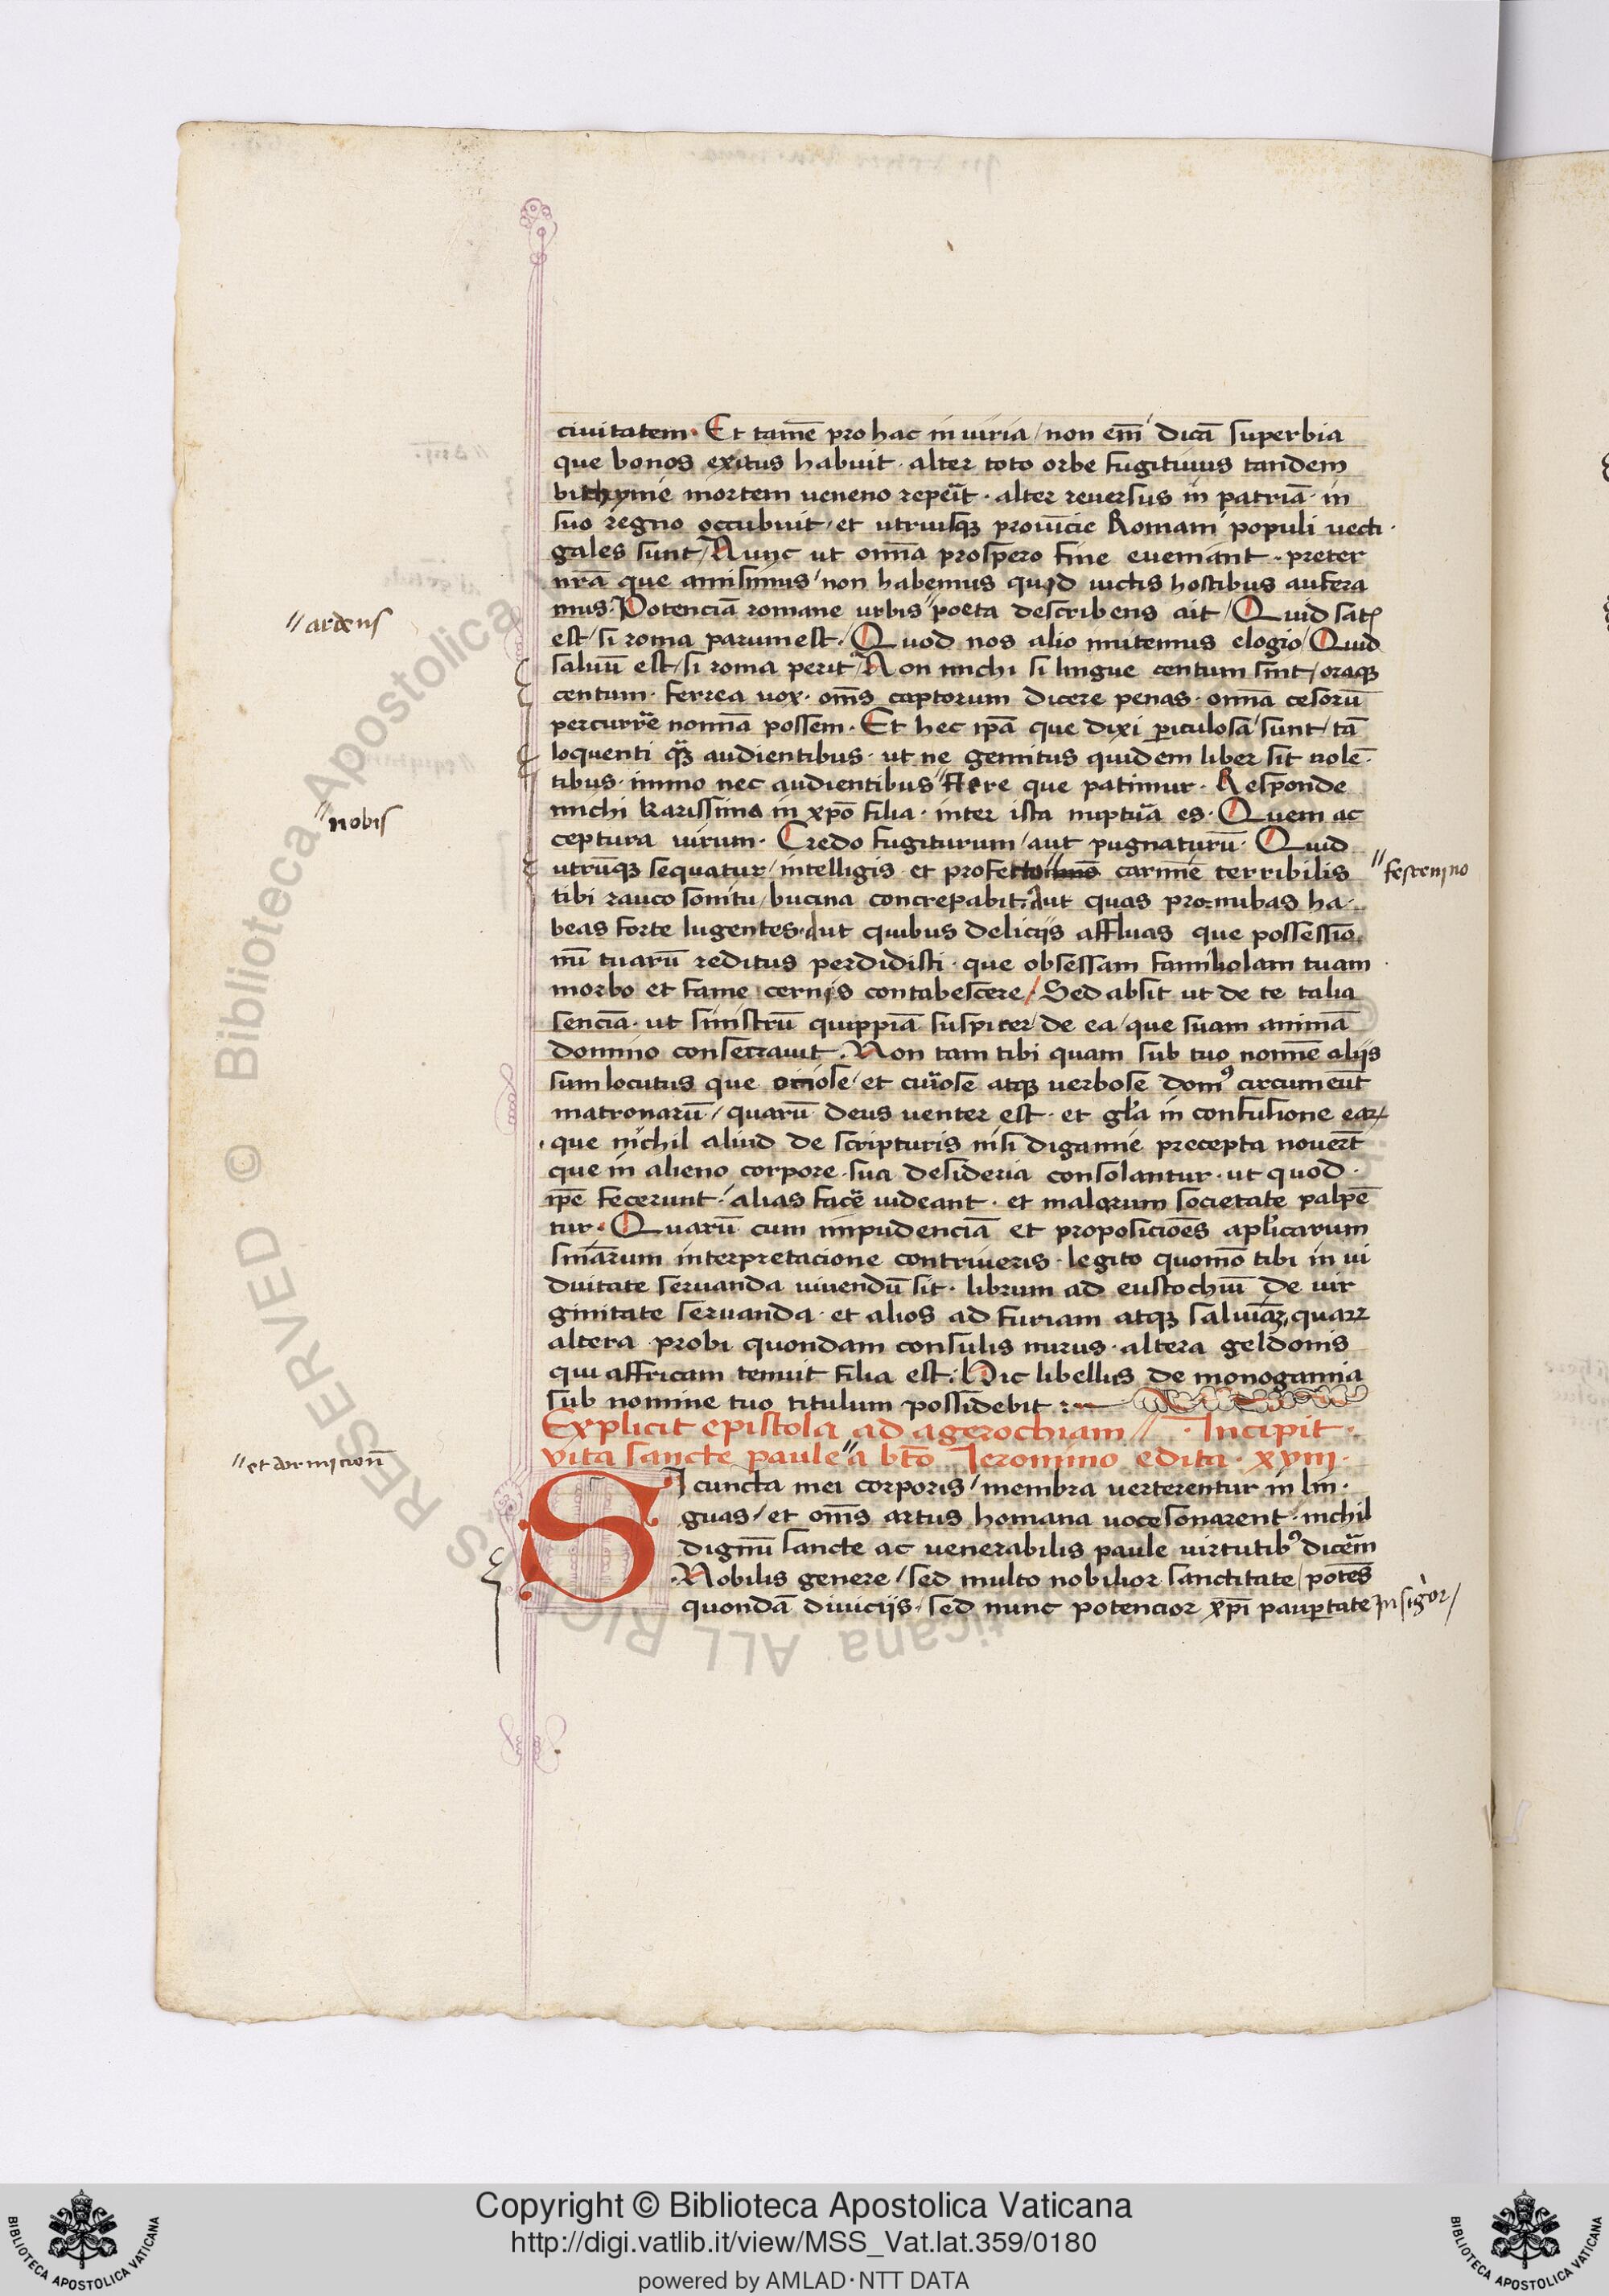 civitatem · Et tamē pro hac iniuria / non em̄ dicā superbia
que bonos exitus habuit · alter toto orbe fugitiuus tandem
bithynie mortem ueneno reperit · alter reuersus in patriā · in
suo regno occubuit / et utriusqꝫ prouīcie Romani populi vecti
gales sunt / Nunc ut omīa prospero fine eueniant · preter
nrā que amisimus / non habemus quid uictis hostibus aufera
mus · Potenciā romane urbis // poeta describens ait / Quid satꝭ
// ardens
est / si roma parum est · Quod nos alio mutemus elogio / Quid
saluū est / si roma perit / Non michi si lingue centum sint / oraqꝫ
centum · ferrea uox · om̄s captorum dicere penas · omīa cesorū
percurrere nomīa possem · Et hec ip̄a que dixi periculosa sunt / tā
loquenti quā audientibus · ut ne gemitus quidem liber sit nolē
tibus · immo nec audientibus // flere que patimur · Responde
// nobis
michi karissima in xp̄o filia · inter ista nuptura es · Quem ac
ceptura uirum · Credo fugiturum / aut pugnaturū · Quid
utrūqꝫ sequatur / intelligis · et carmīe terribilis
// fescenino
tibi rauco sonitu / bucina concrepabit · Aut quas pronubas ha
beas forte lugentes · Aut quibus deliciis affluas que possessio
nū tuarū reditus perdidisti · que obsessam familiolam tuam
morbo et fame cernis contabescere / Sed absit ut de te talia
senciā · ut sinistrū quippiā suspicer / de ea / que suam animā
domino consecrauit · Non tam tibi quam sub tuo nomīe aliis
sum locutus que ociose / et curiose atqꝫ verbose domꝰ circumeūt
matronarū / quarū deus venter est · et gl̄a in confusione earꝝ
que nichil aliud de scripturis nisi digamie precepta nouerūt
que in alieno corpore · sua desideria consolantur · ut quod
ip̄e fecerunt · alias facere uideant · et malorum societate palpē
tur · Quarū cum impudenciā et proposiciōes apl̄icarum
sniārum interpretacione contriueris · legito quomō tibi in ui
duitate seruanda viuendū sit · librum ad eustochiū de vir
ginitate seruanda · et alios ad furiam atqꝫ saluinā, quarꝝ
altera probi quondam consulis nurus · altera geldonis
qui affricam tenuit filia est · Hic libellus de monogamia
sub nomine tuo titulum possidebit :
Explicit epistola ad agerochiam // · Incipit ·
vita sancte paule // a bt̄o Ieronimo edita · xviii ·
// et dormicioni
SI cuncta mei corporis / membra uerterentur in lin
guas / et om̄s artus homana uoce sonarent · nichil
dignū sancte ac venerabilis paule virtutibꝰ dicerem
Nobilis genere / sed multo nobilior sanctitate / potēs
quondā diuiciis · sed nunc potencior xp̄i paupertate insignior /